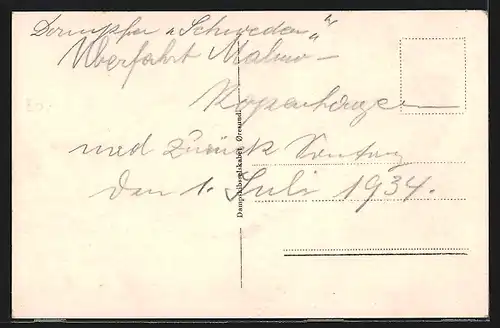 Dampfer „Schweden"
Überfahrt Malmo –
Kopenhagen
und zurück Sontag
den 1. Juli 1934.
Dampskibsselskabet Øresund.